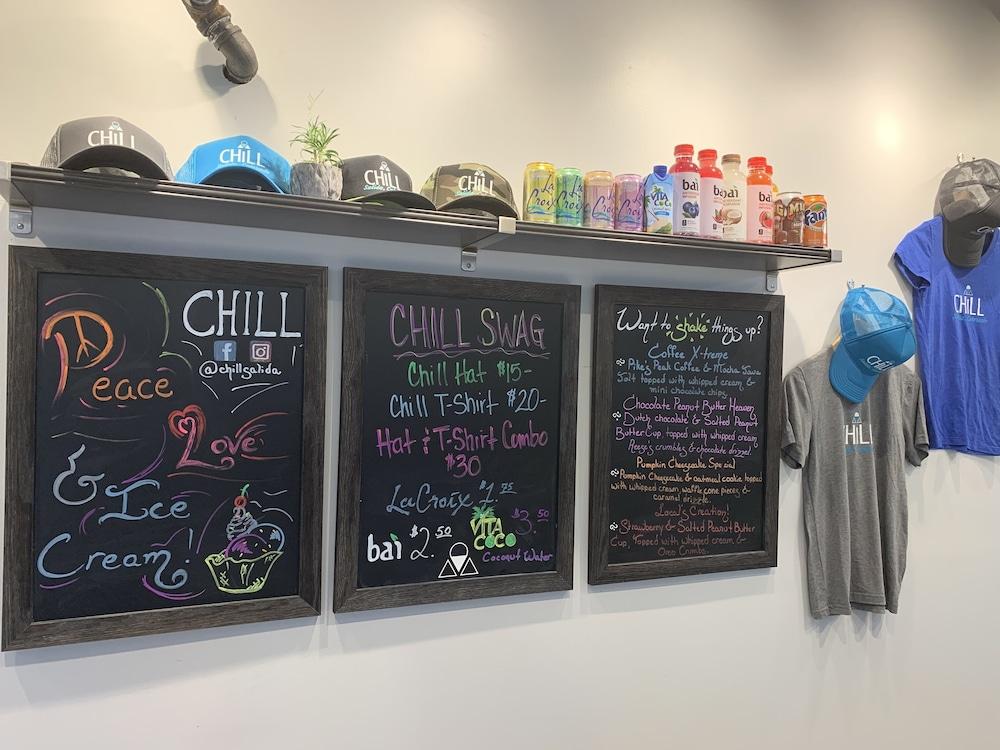 CHILL
CHILL
CHILL
Salida, CO
CHILL
La Croix
La Croix
La Croix
La Croix
VITA COCO
bai
bai
bai
bai
Fanta
CHILL
@chillsalida
Peace
Love
& Ice
Cream!
CHILL SWAG
Chill Hat $15-
Chill T-Shirt $20-
Hat & T-Shirt Combo
$30
LaCroix $1.75
bai $2.50
VITA
COCO
$3.50
Coconut Water
Want to shake things up?
Coffee X-treme
Pike's Peak Coffee & Mocha Java
Salt topped with whipped cream, &
mini chocolate chips
Chocolate Peanut Butter Heaven
Dutch chocolate & Salted Peanut
Butter Cup, topped with whipped cream
Reese's crumbles & chocolate drizzel.
Pumpkin Cheesecake Special
Pumpkin Cheesecake & oatmeal cookie topped
with whipped cream, waffle cone pieces, &
caramel drizzle.
Local's Creation!
Strawberry & Salted Peanut Butter
Cup, Topped with whipped cream &
Oreo Crumbs.
CHILL
CHILL
CHILL